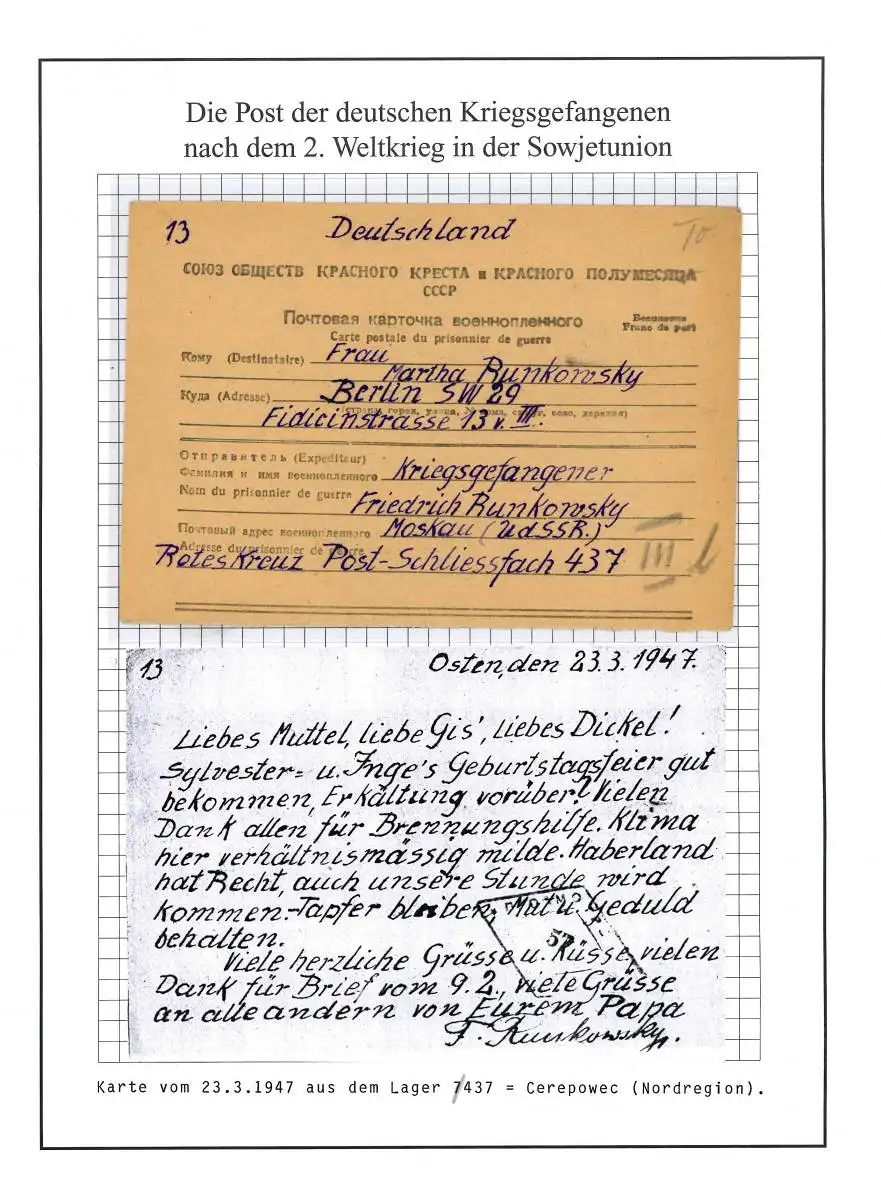 Die Post der deutschen Kriegsgefangenen
nach dem 2. Weltkrieg in der Sowjetunion
13 Deutschland To
СОЮЗ ОБЩЕСТВ КРАСНОГО КРЕСТА и КРАСНОГО ПОЛУМЕСЯЦА
СССР
Почтовая карточка военнопленного
Carte postale du prisonnier de guerre
Бесплатно
Franc de port
Кому (Destinataire) Frau
Martha Runkowsky
Куда (Adresse) Berlin SW 29
(страна, город, улица, № дома, село, деревня)
Fidicinstrasse 13 v. III.
Отправитель (Expéditeur)
Фамилия и имя военнопленного Kriegsgefangener
Nom du prisonnier de guerre
Friedrich Runkowsky
Почтовый адрес военнопленного Moskau (UdSSR.)
Adresse du prisonnier de guerre
Rotes Kreuz Post-Schliessfach 437
III
13 Osten, den 23.3.1947.
Liebes Muttel, liebe Gis', liebes Dickel!
Sylvester= u. Inge's Geburtstagsfeier gut
bekommen, Erkältung vorüber! Vielen
Dank allen für Brennungshilfe. Klima
hier verhältnismässig milde. Haberland
hat Recht, auch unsere Stunde wird
kommen.-Tapfer bleiben, Mut u. Geduld
behalten.
57
Viele herzliche Grüsse u. Küsse, vielen
Dank für Brief vom 9.2., viele Grüsse
an alle andern von Eurem Papa
F. Runkowsky.
Karte vom 23.3.1947 aus dem Lager 7/437 = Cerepowec (Nordregion).